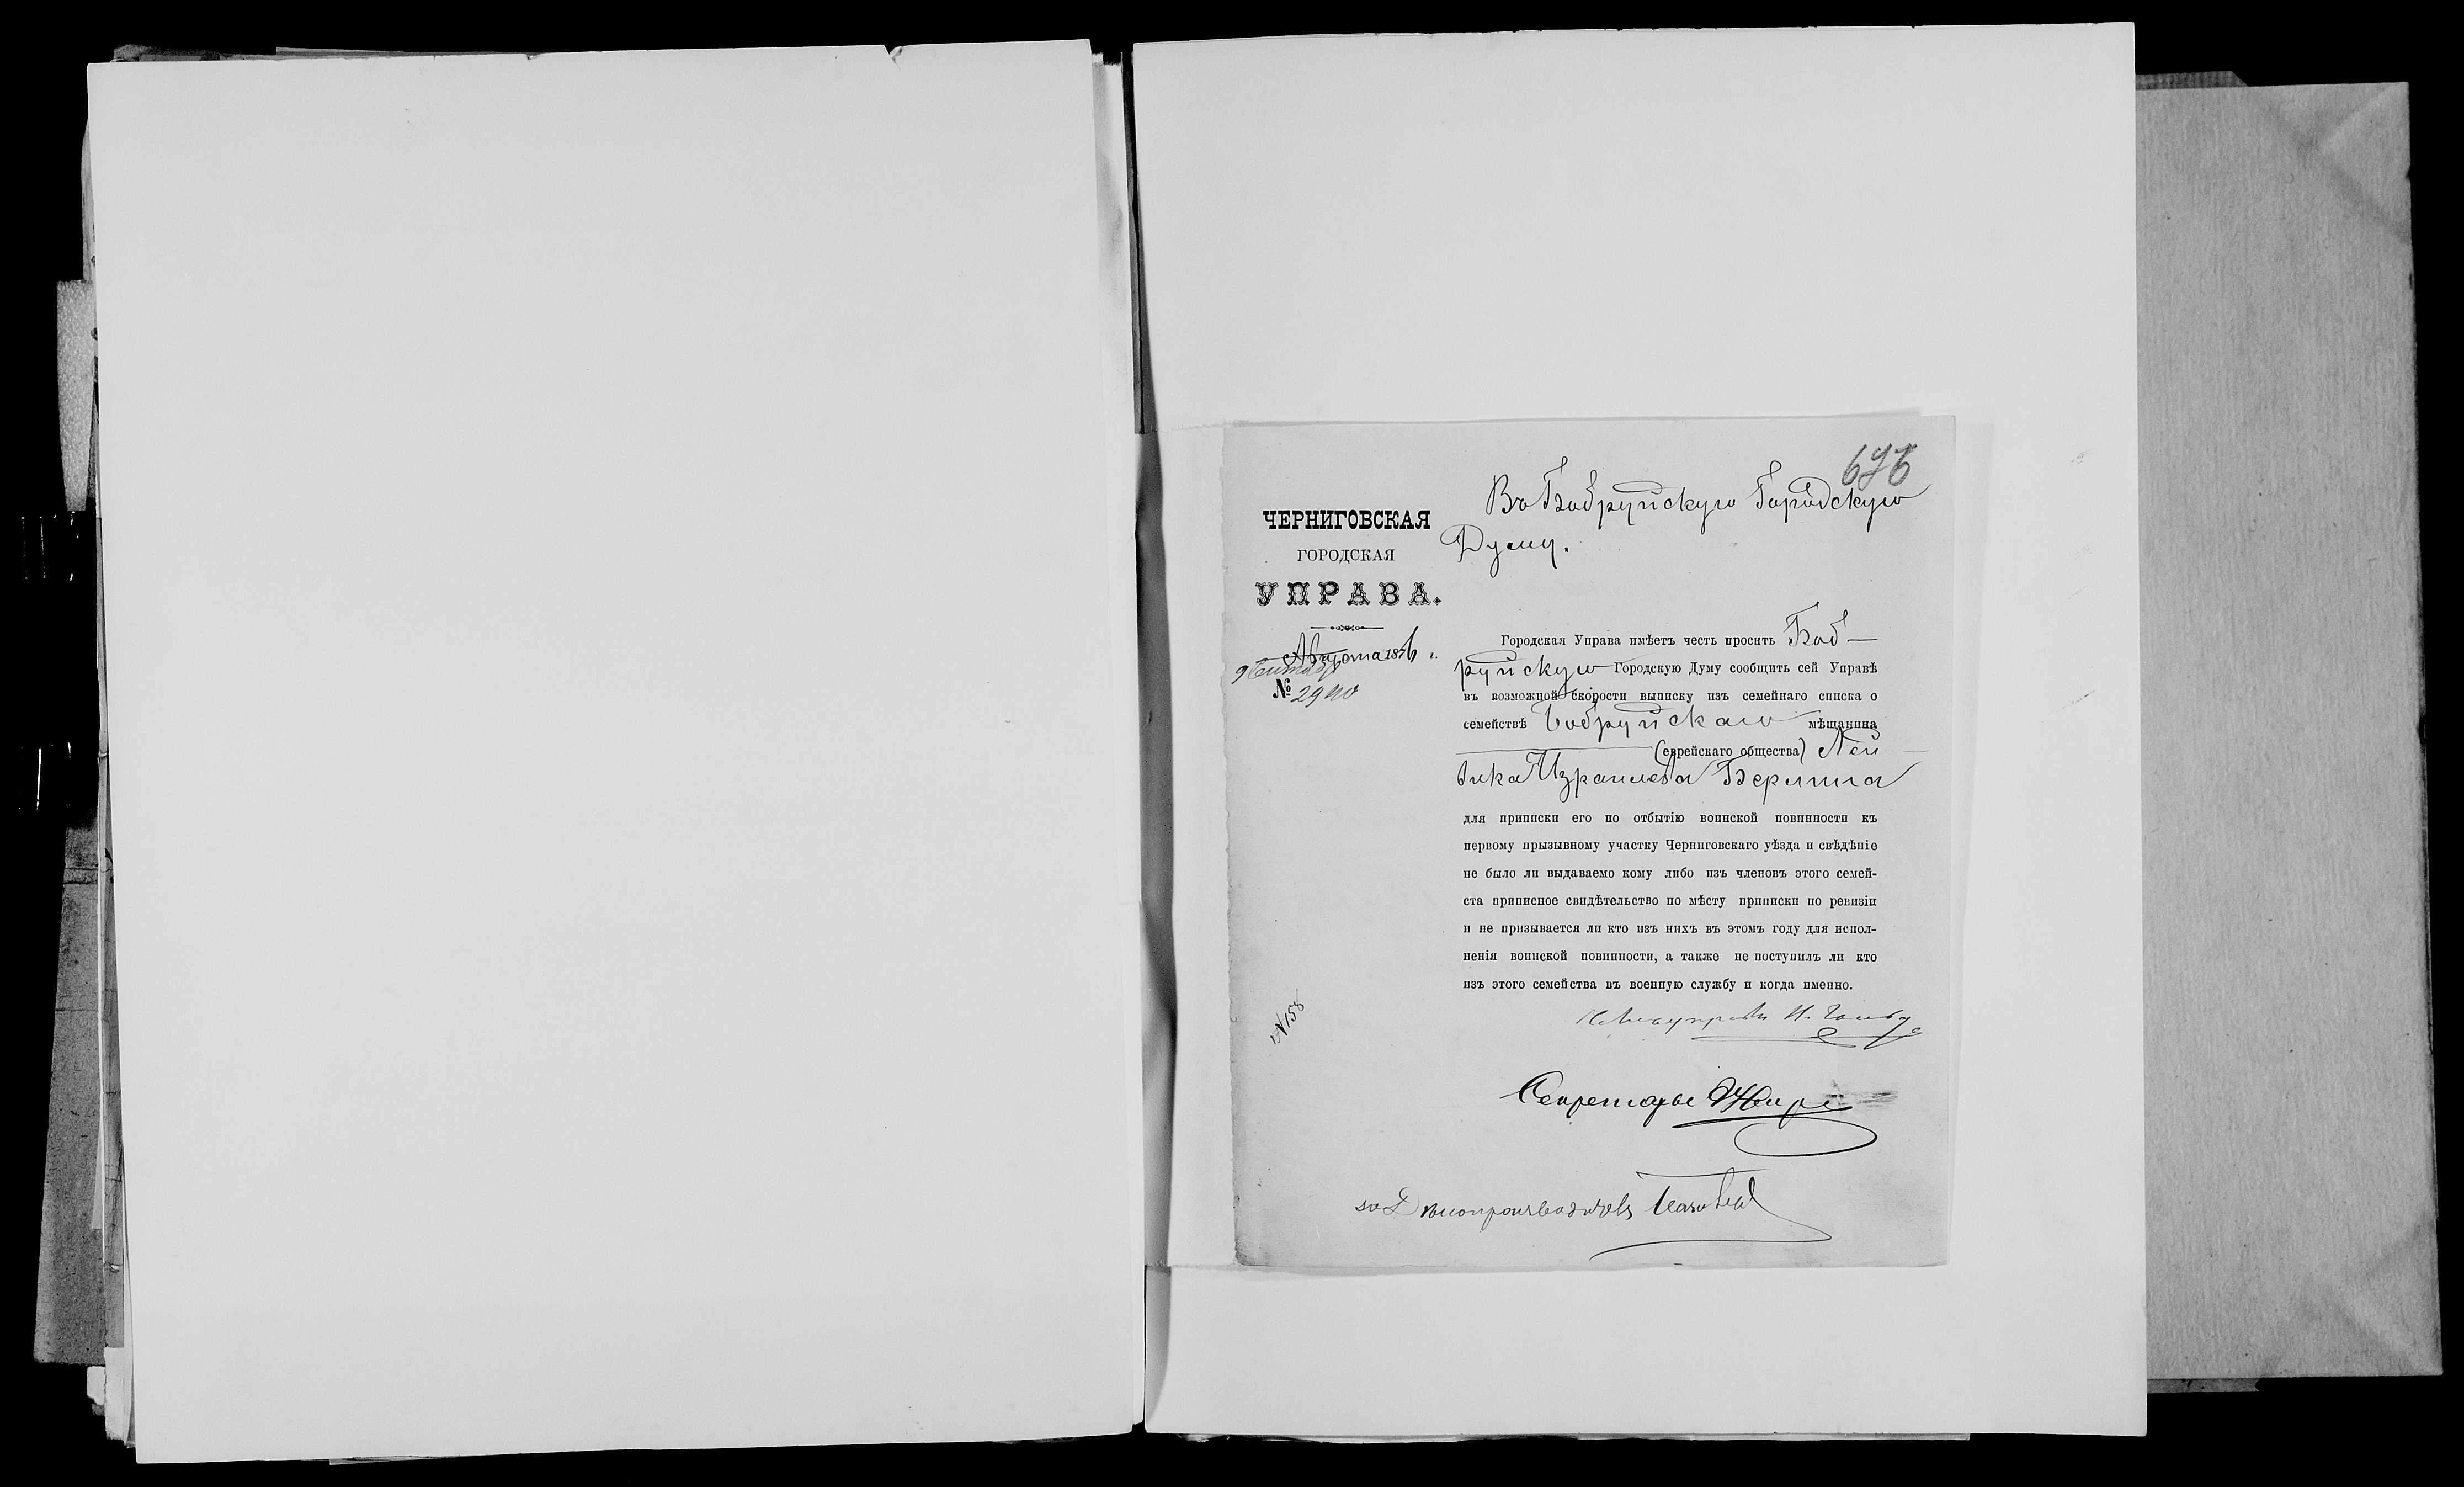 676
ЧЕРНИГОВСКАЯ
ГОРОДСКАЯ
УПРАВА.
Августа 1876 г.
9 Сентября
№ 2940
№ 158
Въ Бобруйскую Городскую
Думу.
Городская Управа имѣетъ честь просить Боб-
руйскую Городскую Думу сообщить сей Управѣ
въ возможной скорости выписку изъ семейнаго списка о
семействѣ Бобруйскаго мѣщанина
(еврейскаго общества) Лей-
вика Израилева Берлина
для приписки его по отбытію воинской повинности къ
первому прызывному участку Черниговскаго уѣзда и свѣдѣніе
не было ли выдаваемо кому либо изъ членовъ этого семей-
ста приписное свидѣтельство по мѣсту приписки по ревизіи
и не призывается ли кто изъ нихъ въ этомъ году для испол-
ненія воинской повинности, а также не поступилъ ли кто
изъ этого семейства въ военную службу и когда именно.
Секретарь
за Дѣлопроизводителя